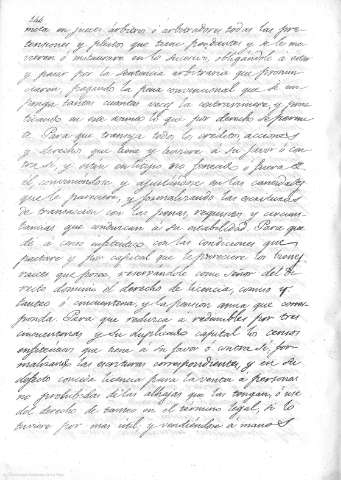 244
meta en jueces árbitros ó arbitradores todas las pre-
tensiones y pleitos que tiene pendientes y se le mo-
vieren ó instauren en lo sucesivo, obligándole á estar
y pasar por la sentencia arbitraria que pronun-
ciaren, pagando la pena convencional que se im-
ponga tantas cuantas veces la contravinere, y prac-
ticando en esa armonía lo que por derecho se permi-
te. Para que transija todos los creditos acciones
y derechos que tiene y tuviere á su favor ó con-
tra si, y estén en litijio no fenecido ó fuera de
el conviniendose y ajustándose en las cantidades
que le parecieren, y formalizando las escrituras
de transaccion con las penas, requisitos y circuns-
tancias que conduzcan á su estabilidad. Para que
dé á censo enfiteutico con las condiciones que
pactare y por capital que le pareciere los bienes
raices que posea, reservándole como Señor del di-
recto dominio el derecho de licencia, comiso y
tanteo ó cincuentena, y la pension anua que corres-
ponda. Para que reduzca á redimibles por tres
cincuentenas y su duplicado capital los censos
enfiteuticos que tiene á su favor ó contra si, for-
malizando las escrituras correspondientes, y en su
defecto conceda licencia para la venta á personas
no prohibidas de las alhajas que las tengan, ó use
del derecho de tanteo en el termino legal, si lo
tuviere por mas útil, y vendiéndose á manos